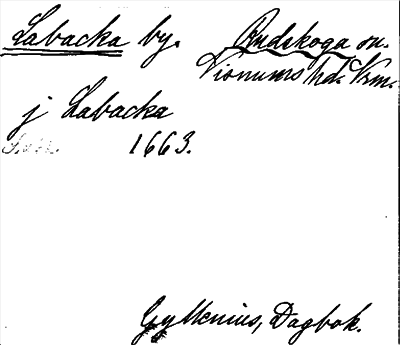 Labacka by. Rudskoga sn.
Visnums hd. Vrm.
j Labacka
1663.
Gyllenius, Dagbok.